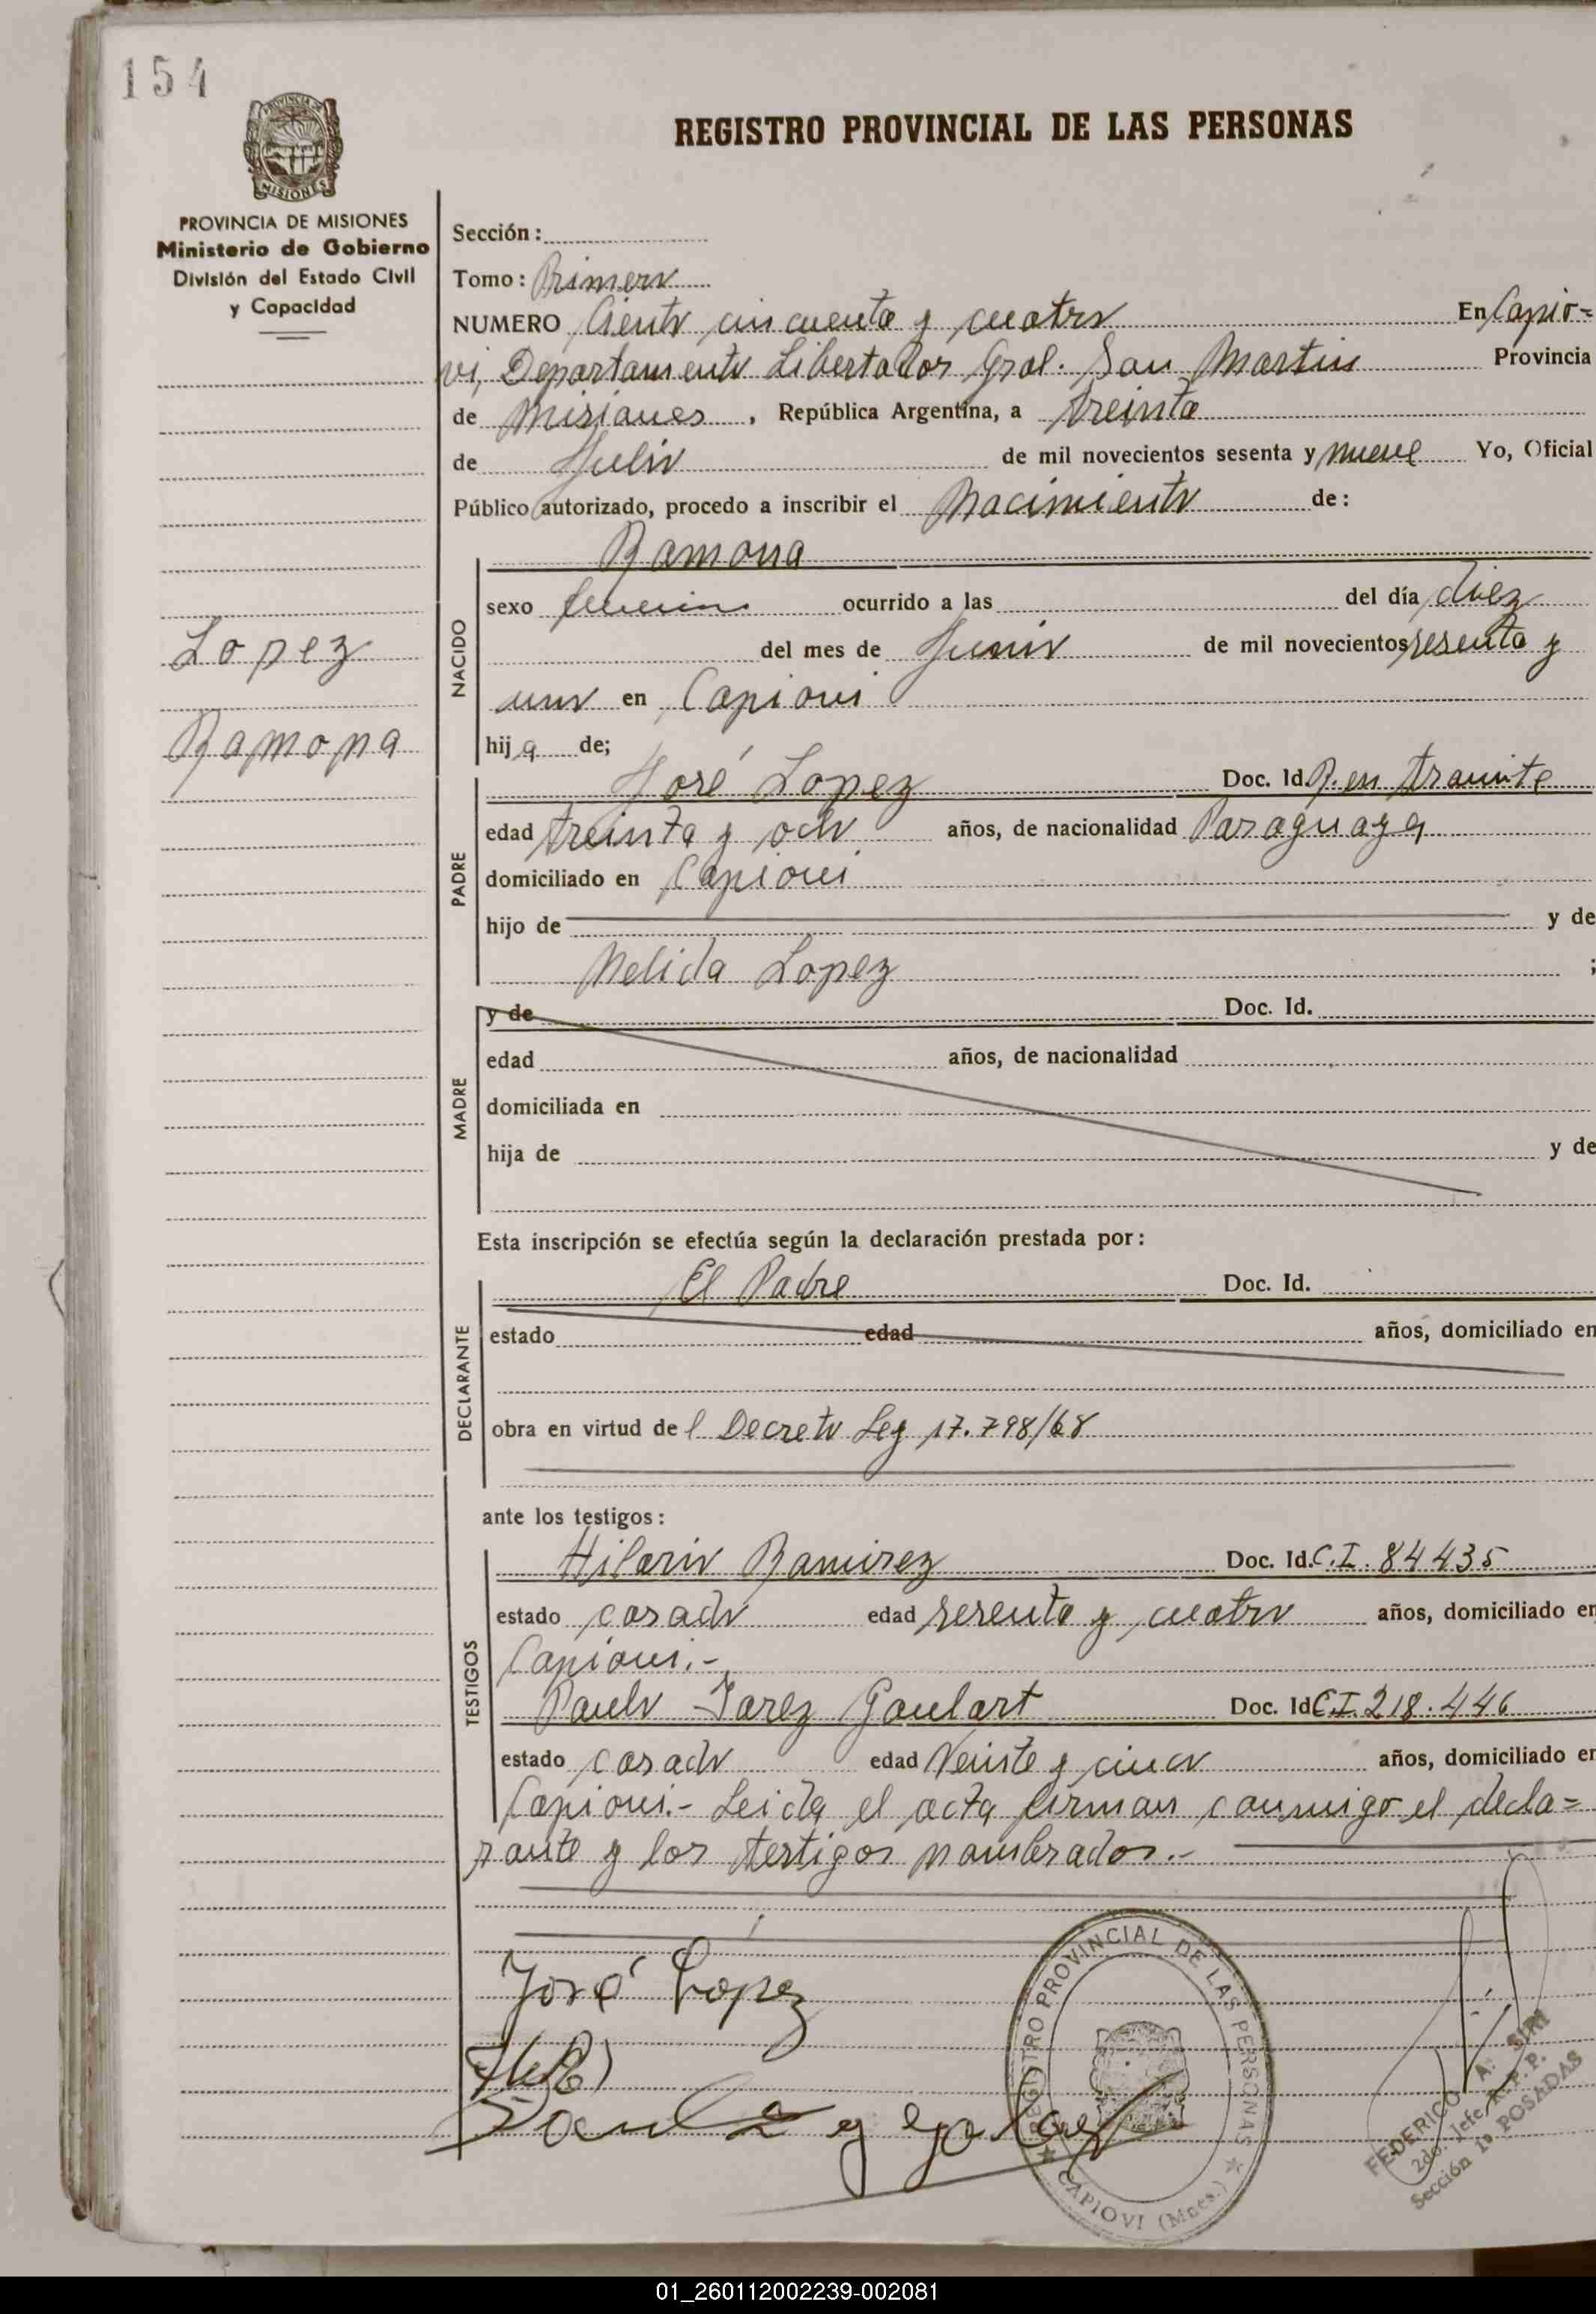 154
REGISTRO PROVINCIAL DE LAS PERSONAS
PROVINCIA DE MISIONES
Ministerio de Gobierno
División del Estado Civil
y Capacidad
Lopez
Ramona
Sección:
Tomo: Primero
NUMERO Ciento cincuenta y cuatro En Capio=
vi, Departamento Libertador Gral. San Martin Provincia
de Misiones, República Argentina, a treinta
de Julio de mil novecientos sesenta y nueve Yo, Oficial
Público autorizado, procedo a inscribir el Nacimiento de:
NACIDO
Ramona
sexo femenino ocurrido a las del día diez
del mes de Junio de mil novecientos sesenta y
uno en Capiovi
hija de;
PADRE
José Lopez Doc. Id. P. en tramite
edad treinta y ocho años, de nacionalidad Paraguaya
domiciliado en Capiovi
hijo de y de
Nelida Lopez ;
MADRE
y de Doc. Id.
edad años, de nacionalidad
domiciliada en
hija de y de
Esta inscripción se efectúa según la declaración prestada por:
DECLARANTE
El Padre Doc. Id.
estado edad años, domiciliado en
obra en virtud del Decreto Ley 17.798/68
ante los testigos:
TESTIGOS
Hilario Ramirez Doc. Id. C.I. 84435
estado casado edad sesenta y cuatro años, domiciliado en
Capiovi.-
Paulo Jarez Goulart Doc. Id C.I. 218.446
estado casado edad Veinte y cinco años, domiciliado en
Capiovi.- Leida el acta firman conmigo el decla=
rante y los testigos nombrados.-
José López
REGISTRO PROVINCIAL DE LAS PERSONAS
CAPIOVI (Mnes.)
FEDERICO A. SIRI
2do. Jefe R.P.P.
Sección 1º POSADAS
01_260112002239-002081